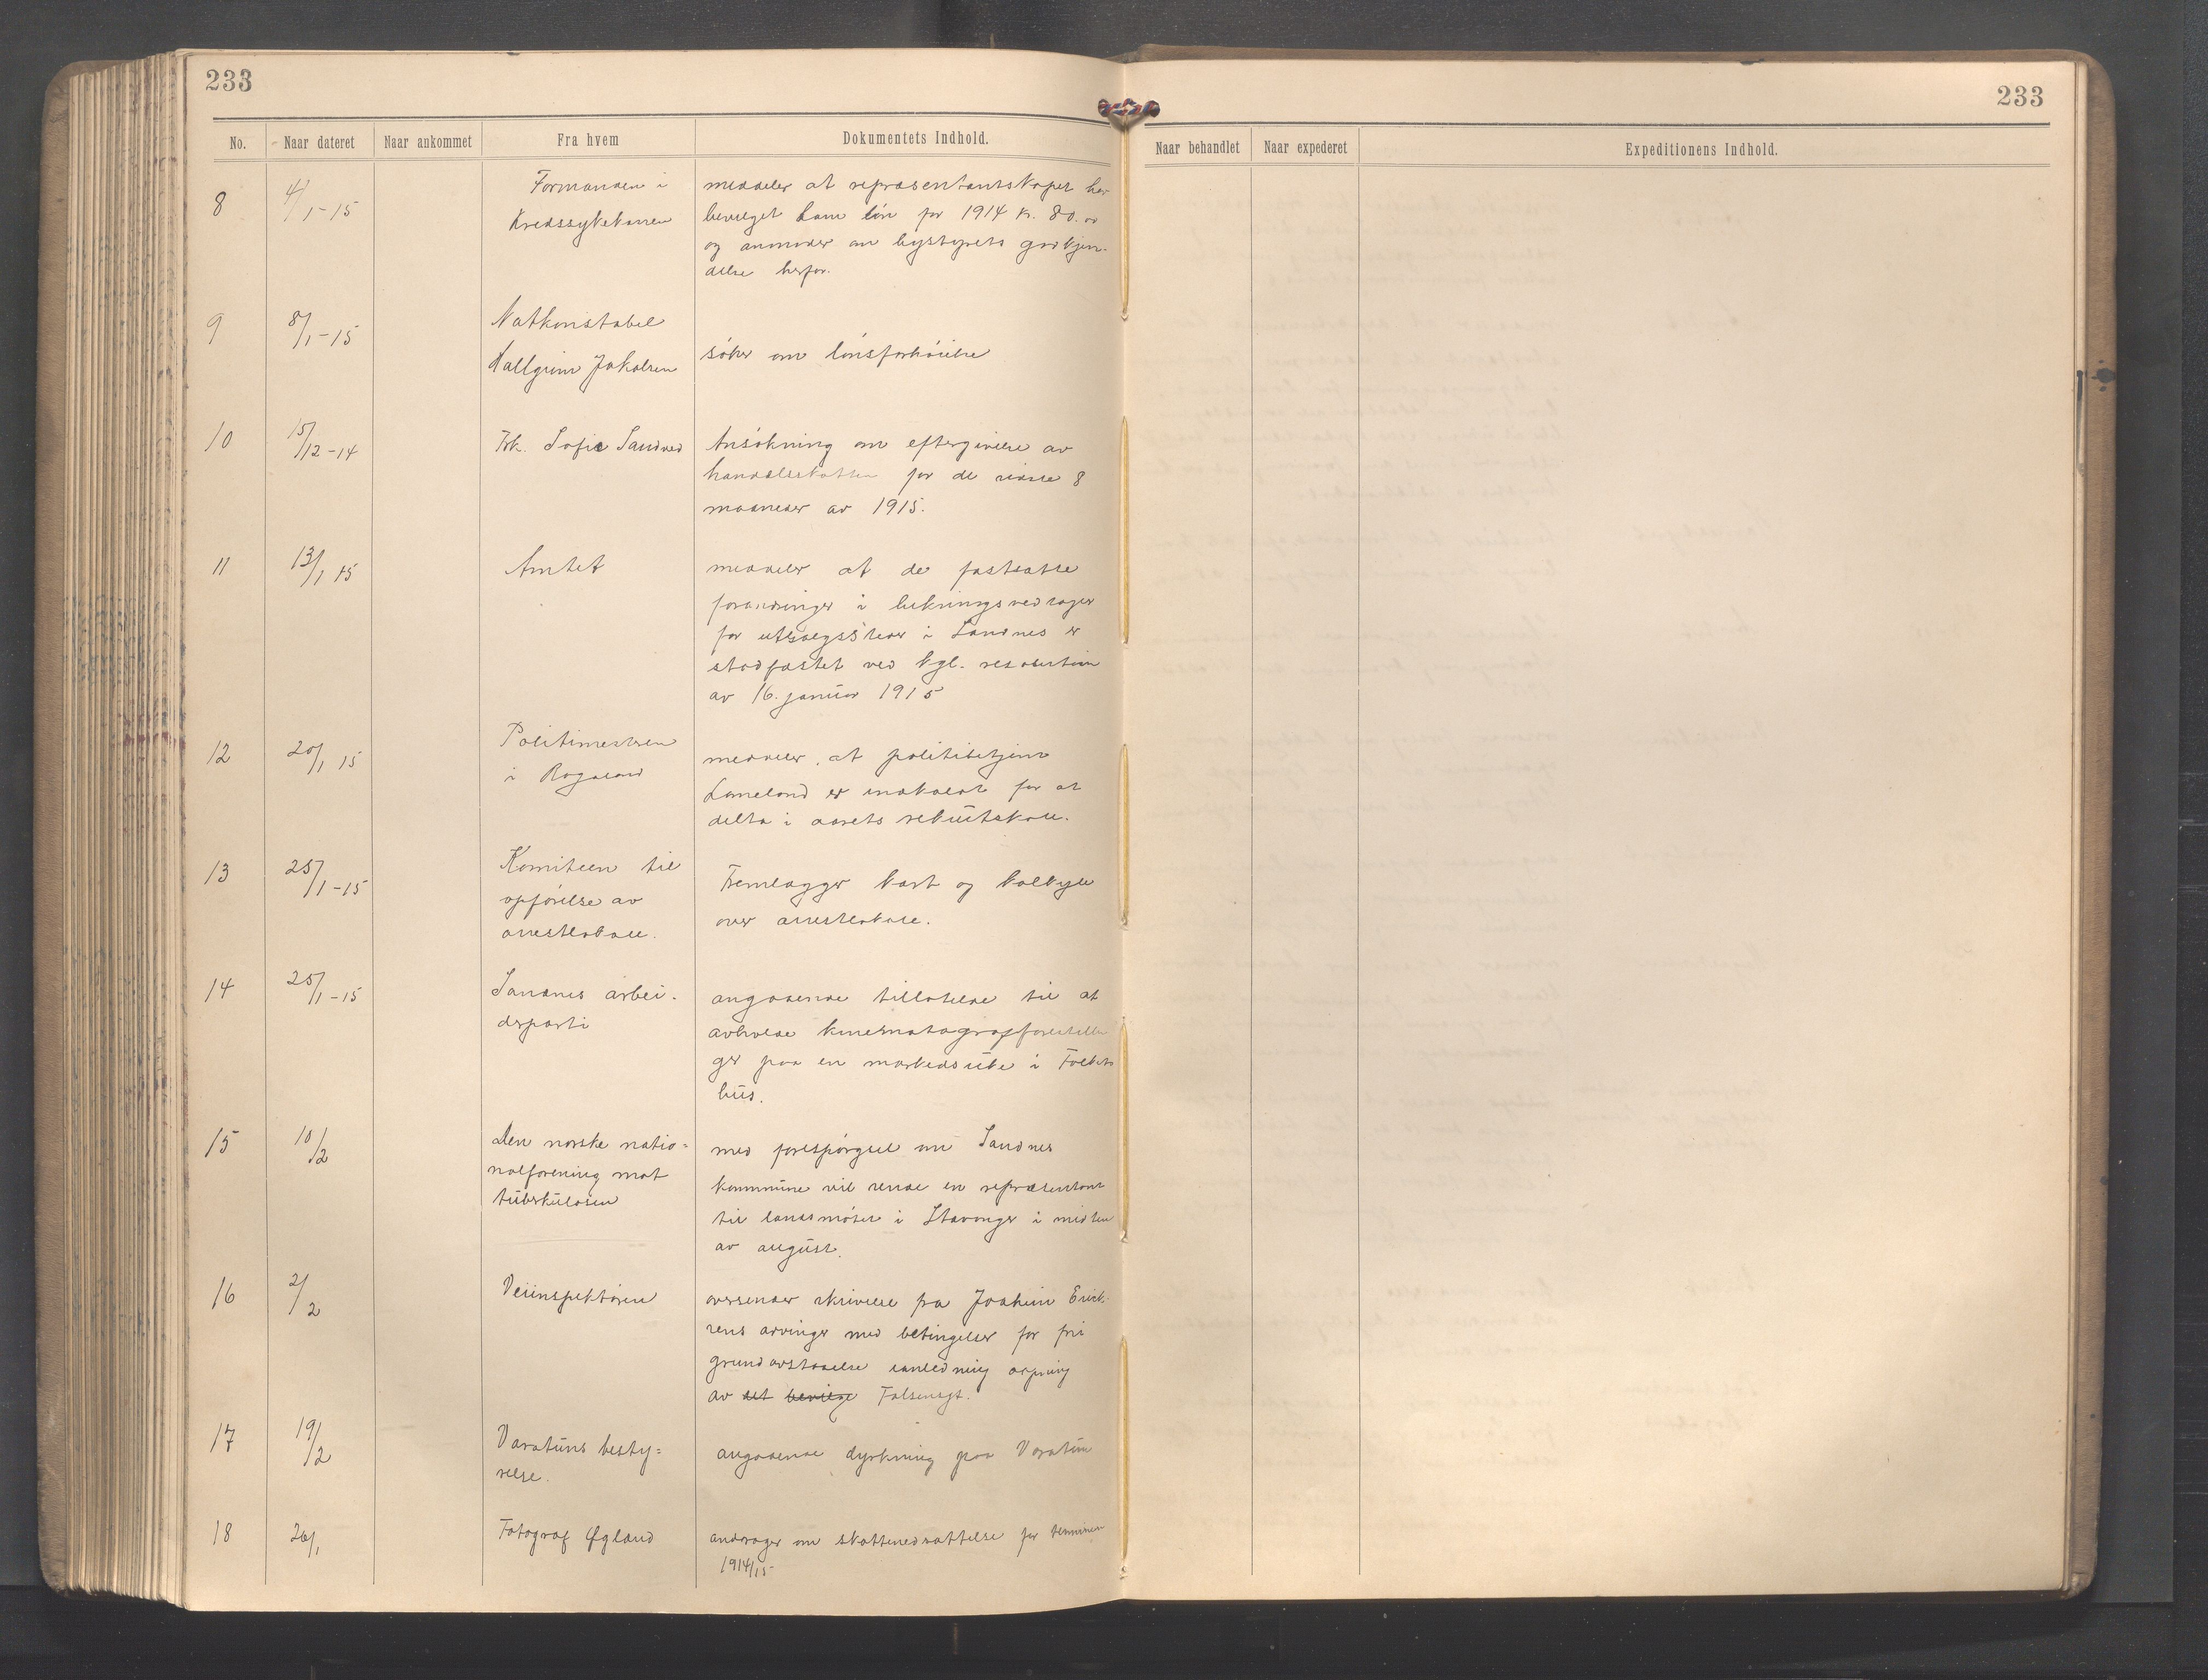 233
233
No. Naar dateret Naar ankommet Fra hvem Dokumentets Indhold.
Naar behandlet Naar expederet Expeditionens Indhold.
8 4/1-15 Formanden i meddeler at repræsentantskapet har
Kredssykekassen bevilget ham løn for 1914 kr. 80.00
og anmoder om bystyrets godkjen-
delse herfor.
9 8/1-15 Natkonstabel
Hallgrim Jakobsen søker om lønsforhøielse
10 15/12-14 Frk. Sofie Sandved Ansøkning om eftergivelse av
handelsskatten for de sidste 8
maaneder av 1915.
11 13/1 15 Amtet meddeler at de fastsatte
forandringer i lukningsvedtæger
for utsalgssteder i Sandnes er
stadfæstet ved kgl. resolution
av 16. januar 1915
12 20/1 15 Politimesteren
i Rogaland meddeler, at politibetjent
Lomeland er indkaldt for at
delta i aarets rekrutskole.
13 25/1-15 Komiteen til
opførelse av
arrestlokale.
Fremlægger kart og kalkyle
over arrestlokale.
14 25/1-15 Sandnes arbei-
derparti
angaaende tillatelse til at
avholde kinematografforestillin
ger paa en markedsuke i Folkets
hus.
15 10/2 Den norske natio=
nalforening mot
tuberkulosen
med forespørgsel om Sandnes
kommune vil sende en repræsentant
til landsmøtet i Stavanger i midten
av august.
16 2/2 Veiinspektøren oversender skrivelse fra Joakim Erick-
sens arvinger med betingelser for fri
grundavstaaelse anledning
av det bevilge
17 19/2 Varatuns besty=
relse.
angaaende dyrkning paa Varatun
18 26/1 Fotograf Øgland andrager om skattenedsættelse for terminen
1914/15